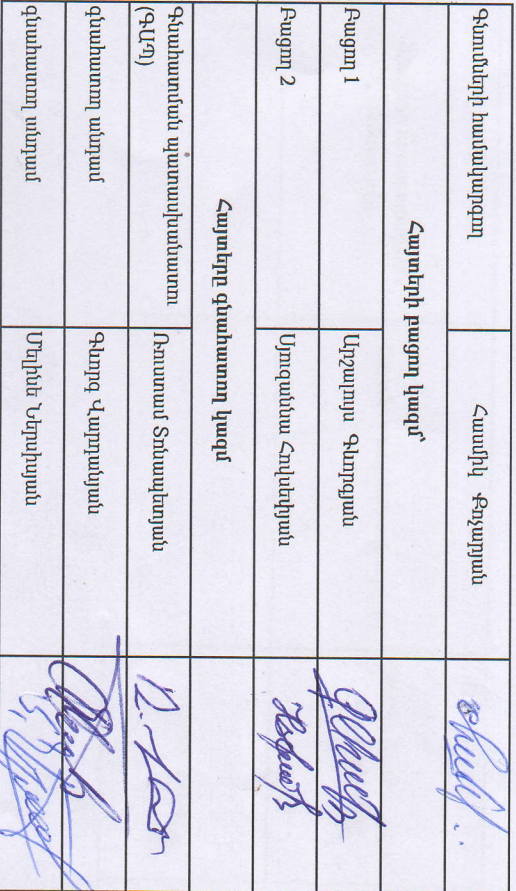 Գնումների համակարգող Համիկ Քոչարյան
Հայտերի բացող կազմ՝
Բացող 1 Արշալույս Գևորգյան
Բացող 2 Սյուզաննա Հովսեփյան
Հայտերը գնահատող կազմ
Գնահատման պատասխանատու Ռուստամ Տոնապետյան
(ԳԱՊ)
գնահատող անդամ Գևորգ Վարդանյան
գնահատող անդամ Մելինե Ներսիսյան